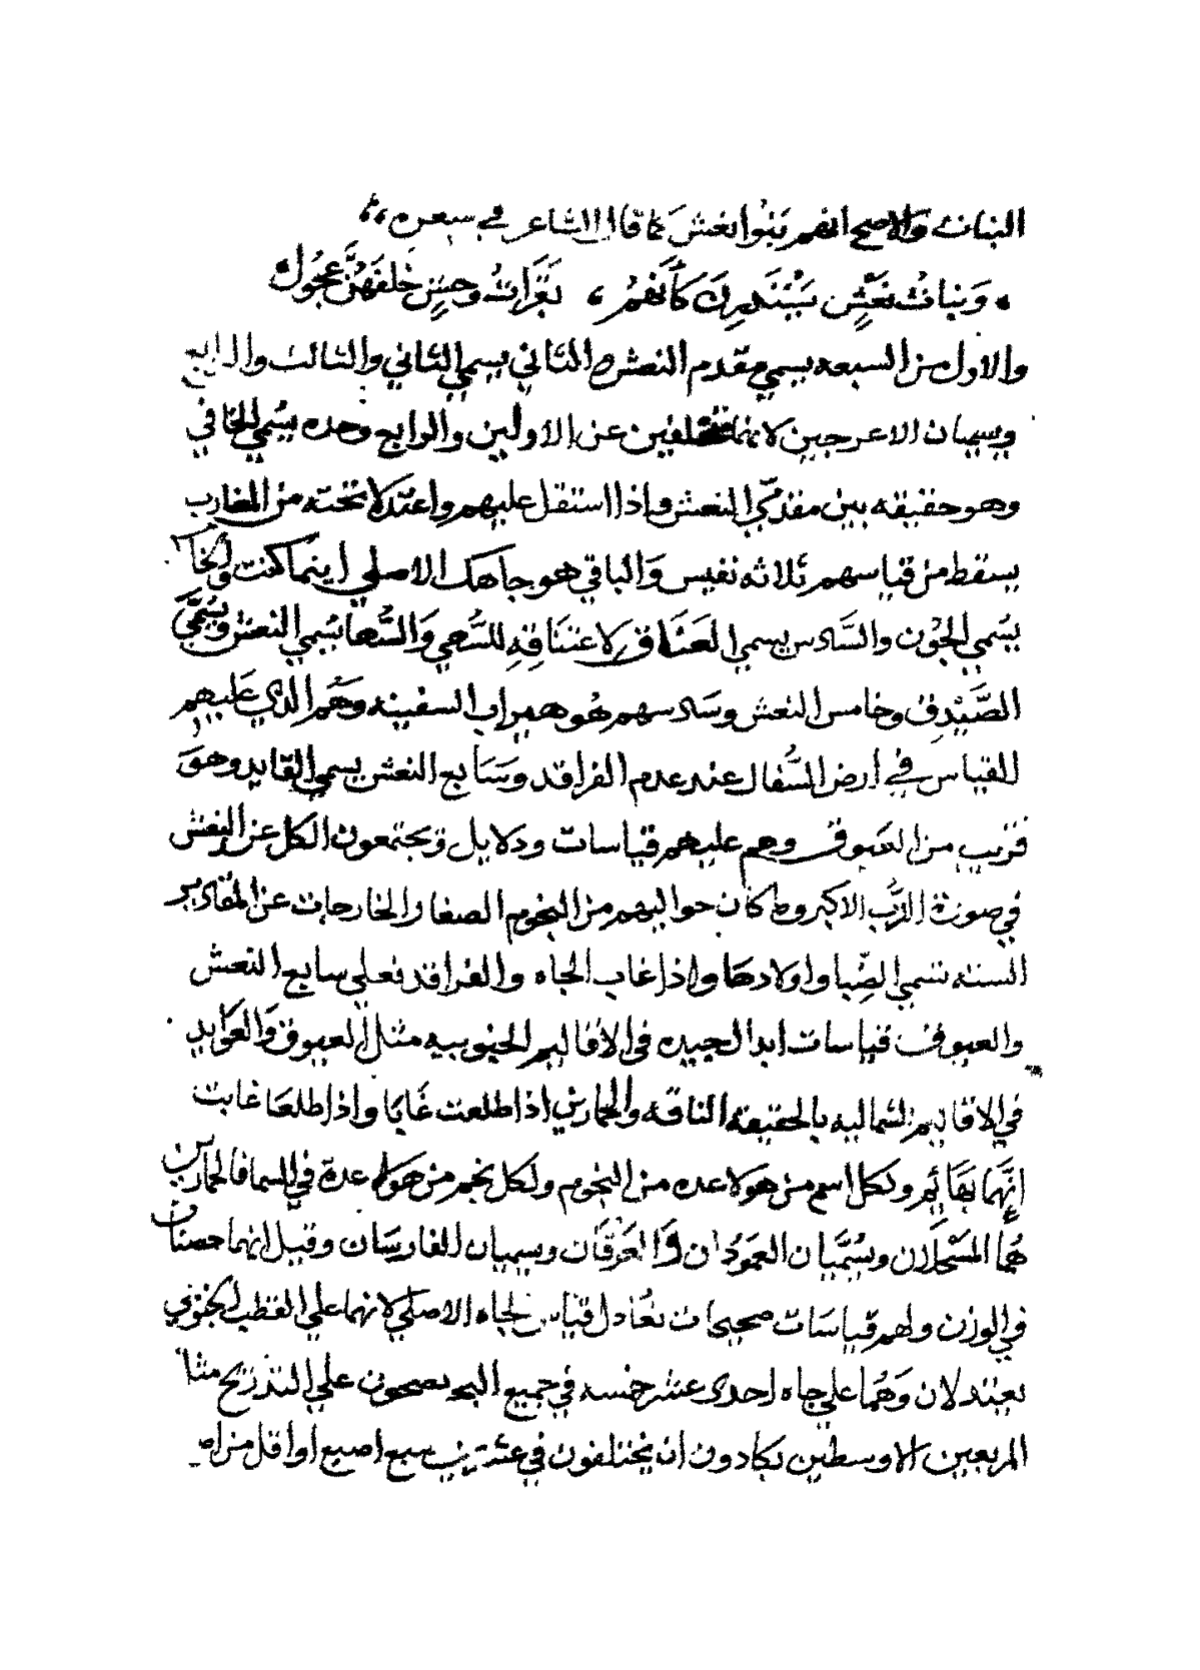 البنات والاصح انهم بَنُوا نعش كما قال الشاعر في شعره
وَبناتُ نَعْشٍ يَبْتَدِرنَ كَأَنهُمُ ، بَقَرَاتُ وحشٍ خلفَهُنَّ عجُول
والاول من السبعه يسمي مقدم النعش والثاني يسمي الثاني والثالث والرابع
ويسميان الاعرجين لانهما مختلفين عن الاولين والرابع وحده يسُمي الخافي
وهو حقيقه بين مقدمَي النعش واذا استقل عليهم واعتدلا تحته من المغارب
يسقط من قياسهم ثلاثه نفيس وَالباقي هو جاهك الاصلي اينما كنت
يسُمي الجوْن والسَّادس يسمي العَنَاق لاعتنَاقِهِ للسُّهي وَالسُّها يسُمي النعش ويسُمَّي
الصَّيْدق وخامس النعش وسَادسهم هُو هيراب السفينه وَهَم الذي عَليهم
القياس في ارض السُّفال عند عدم الفراقد وسَابع النعش يسمي القايد وهوَ
قريب من العيوق وهم عليهم قياسات ودلايل ويجتمعون الكل عن النعش
في صورة الدُّب الاكبر وما كان حواليهم من النجوم الصغار الخارجات عن المقادير
السته تسمي الضِّبا واولادهَا واذا غاب الجاه والفراقد فعلي سابع النعش
والعيوق قياسات ابدال جيده في الاقاليم الجنوبيه مثل العيوق وَالعوَايد
في الاقاليم الشماليه بالحقيقه الناقه والحمارين اذا طلعت غَابَا واذا طلعَا غابت
انَّهَا بهَائِم ولكل اسم من هولاء عده من النجوم ولكل نجم من هولاء عدة في السما فالحمارين
هُما المَسْحلان ويسُمَّيان العَموُدان وَالعَرقَان ويسميان الفارسَان وقيل انهما حصنان
في الوزن ولهم قياسَات صحيحات تعُادل قياس الجاه الاصَلي لانهما علي القطب الجنوبي
يعتدلان وَهُما علي جاه احدى عشر خمسه في جميع البحر يصحون علي التدريج مثل
المربعين الاوسطين يكادون ان يختلفون في عشر سبع اصبع او اقل من